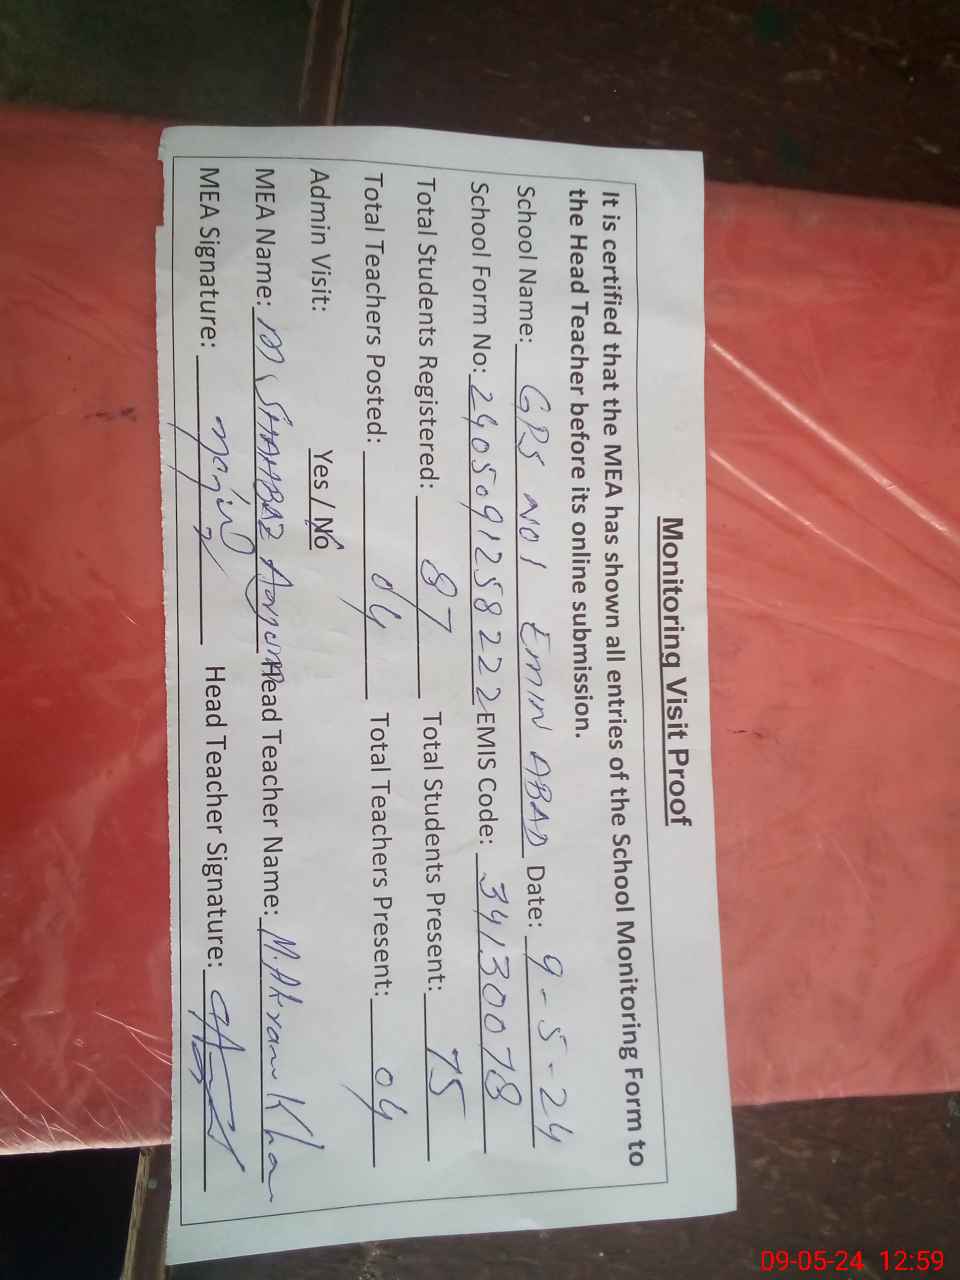 Monitoring Visit Proof
It is certified that the MEA has shown all entries of the School Monitoring Form to
the Head Teacher before its online submission.
School Name: GPS NO1 EMIN ABAD Date: 9-5-24
School Form No: 2405091258222 EMIS Code: 34130078
Total Students Registered: 87 Total Students Present: 75
Total Teachers Posted: 04 Total Teachers Present: 04
Admin Visit: Yes / No
MEA Name: M SHAHBAZ Head Teacher Name: M. Akram Khan
MEA Signature: Head Teacher Signature:
09-05-24 12:59